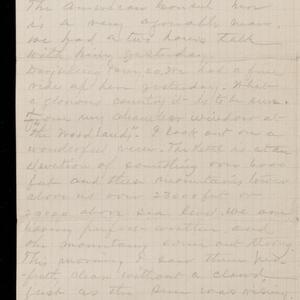 The American Consul here
is a very agreeable man.
We had a two hours talk
with him yesterday.
Darjeeling We had a fine
ride up here yesterday. What
a glorious country it is to be sure.
From my chamber window at
"The Woodlands" I look out on a
wonderful view. The hotel is at an
elevation of something over 6000
feet and these mountains tower
above us over 23000 feet or
29000 above sea level. We are
having perfect weather and
the mountains come out
This morning I saw them
clear without a cloud
just as the Sun was rising